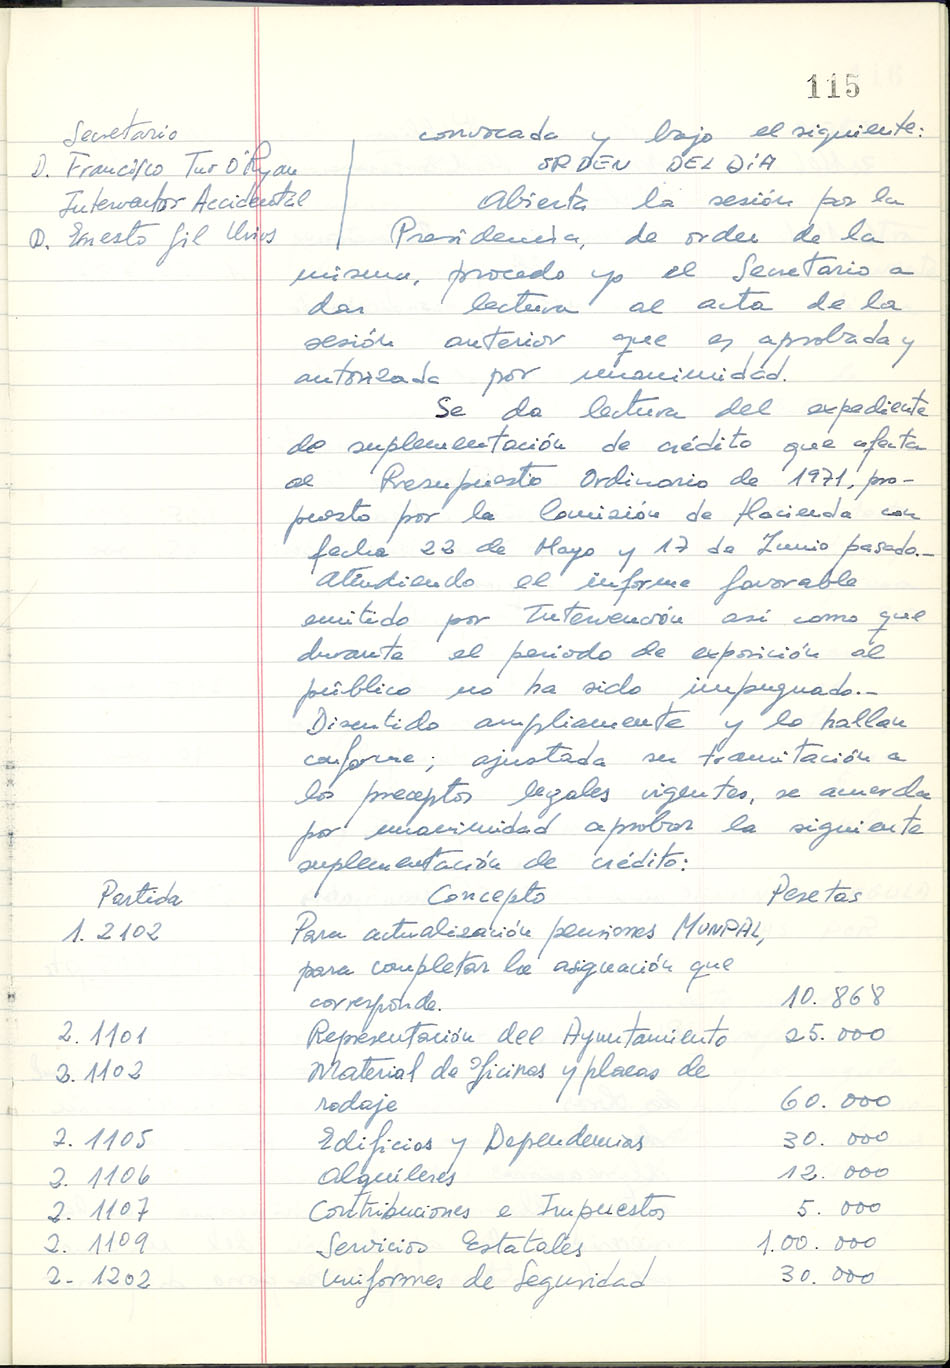 115
Secretario
D. Francisco Tur O'Ryan
Interventor Accidental
D. Ernesto Gil
convocada y bajo el siguiente:
ORDEN DEL DIA
Abierta la sesión por la
Presidencia, de orden de la
misma, procedo yo el Secretario a
dar lectura al acta de la
sesión anterior que es aprobada y
autorizada por unanimidad.
Se da lectura del expediente
de suplementación de crédito que afecta
al Presupuesto Ordinario de 1971, pro-
puesto por la Comisión de Hacienda con
fecha 22 de Mayo y 17 de Junio pasado.-
Atendiendo el informe favorable
emitido por Intervención así como que
durante el periodo de exposición al
público no ha sido impugnado.-
Discutido ampliamente y lo hallan
conforme; ajustada su tramitación a
los preceptos legales vigentes, se acuerda
por unanimidad aprobar la siguiente
suplementación de crédito:
Partida Concepto Pesetas
1. 2102 Para actualización pensiones MUNPAL,
para completar la asignación que
corresponde. 10.868
2. 1101 Representación del Ayuntamiento 25.000
2. 1102 Material de Oficinas y placas de
rodaje 60.000
2. 1105 Edificios y Dependencias 30.000
2. 1106 Alquileres 12.000
2. 1107 Contribuciones e Impuestos 5.000
2. 1109 Servicios Estatales 1.00.000
2- 1202 Uniformes de Seguridad 30.000